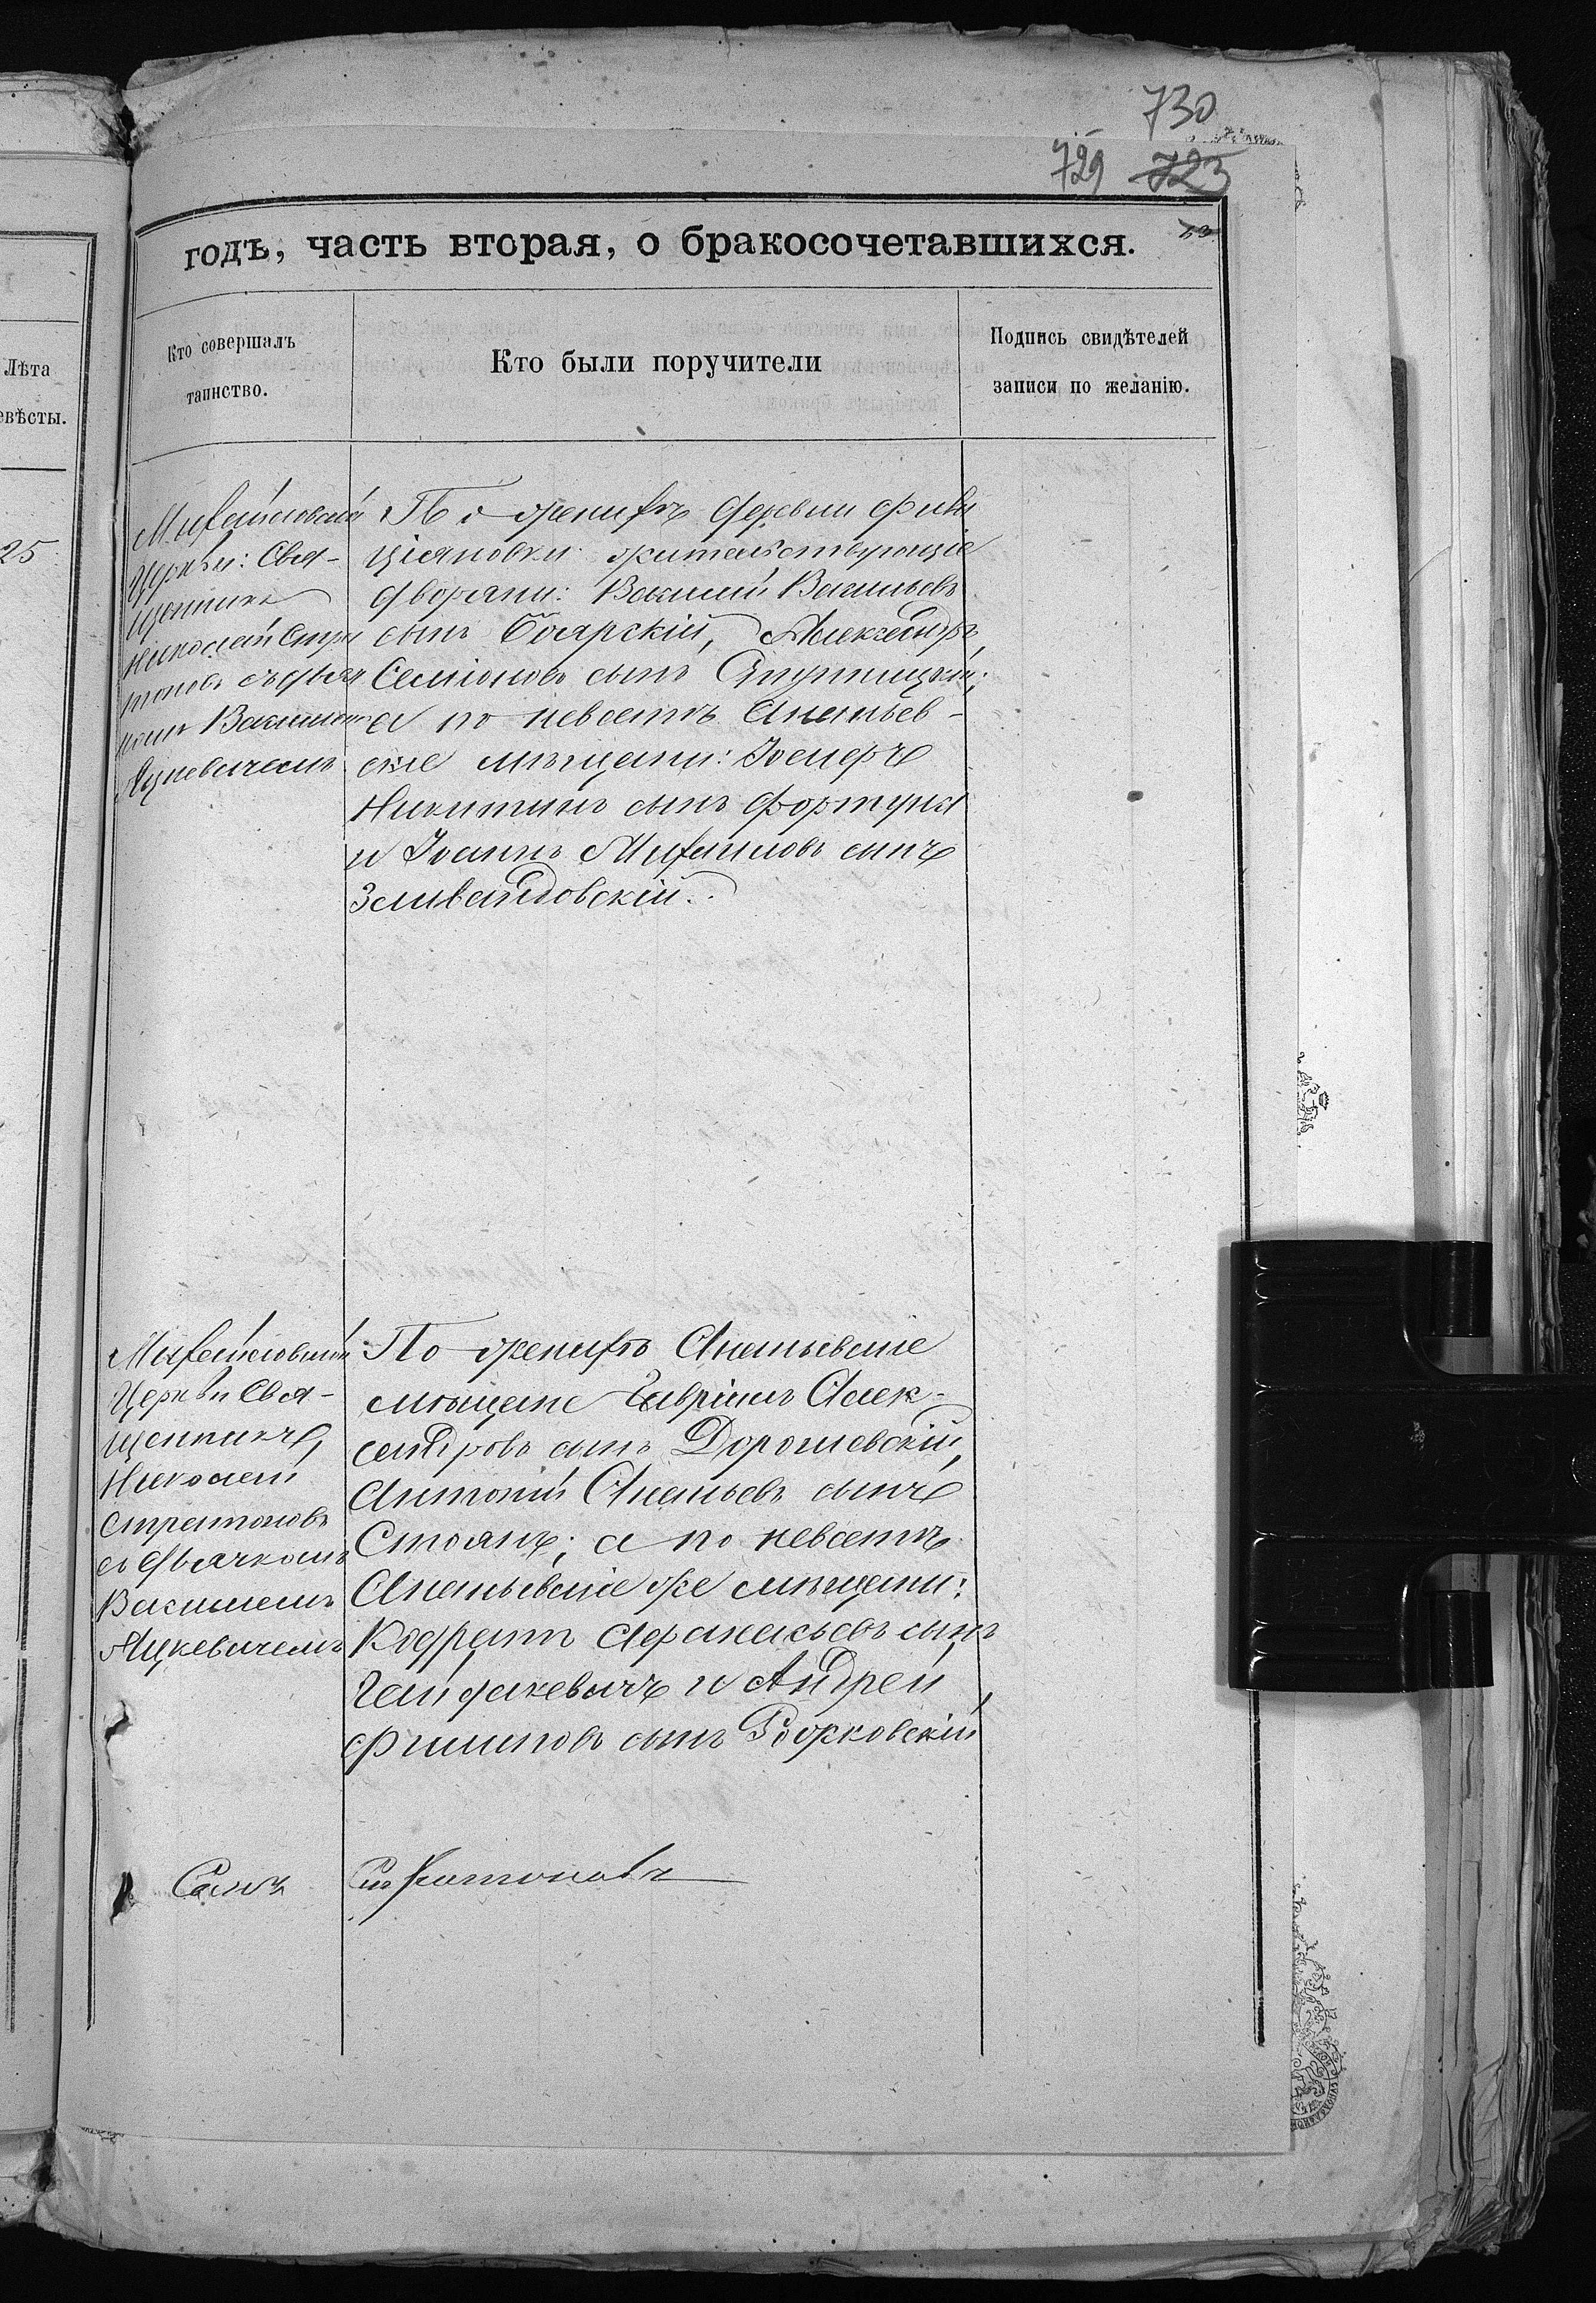 730
729 723
годъ, часть вторая, о бракосочетавшихся.
Лѣта
евѣсты.
25
Кто совершалъ
таинство.
Кто были поручители
Подпись свидѣтелей
записи по желанію.
Михайловской
Церкви: Свя-
щенникъ
Николай Стра
тоновъ съ дья
комъ Василіемъ
Яцкевичемъ
По женихѣ деревни
жительствующіе
дворяни: Василій Васильевъ
сынъ Боярскій, Александръ
Семіоновъ сынъ
а по невестѣ Ананьев-
скіе мѣщани: Іосифъ
Никитинъ сынъ Фортуна
и Іоаннъ Михаиловъ сынъ
Михайловской
Церкви Свя-
щенникъ,
Николай
Стратоновъ
съ дьячкомъ
Василіемъ
Яцкевичемъ
По женихѣ Ананьевскіе
мѣщане Гавріилъ Алек-
сандровъ сынъ Дорошевскій,
Антоній Ананьевъ сынъ
Стоянъ; а по невестѣ
Ананьевскіе же мѣщани:
Кодратъ Афанасьевъ сынъ
и Андрей
Филиповъ сынъ
Свящ. Стратоновъ